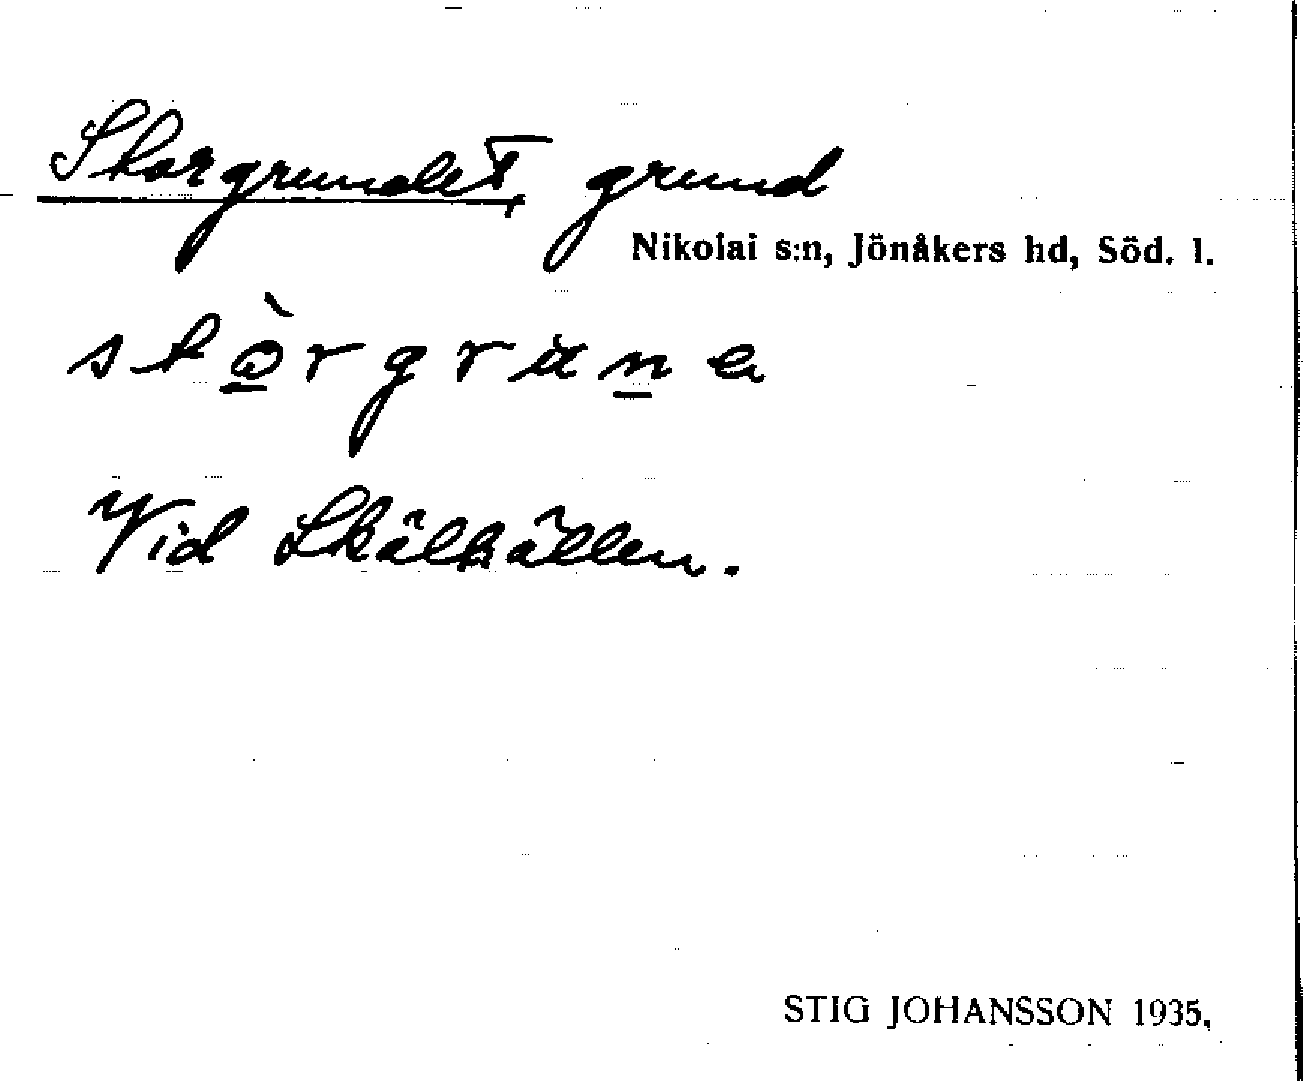 Skorgrundet, grund
Nikolai s:n, Jönåkers hd, Söd. l.
s k ò r g r u n e
Vid Skälhällen.
STIG JOHANSSON 1935.